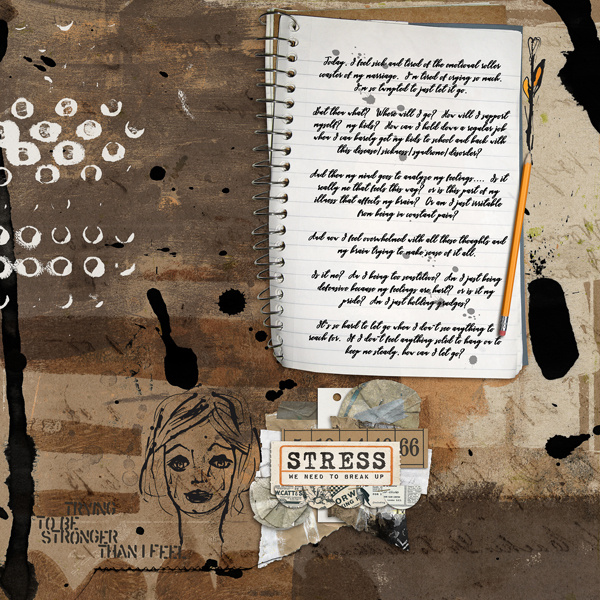 Today, I feel sick and tired of the emotional roller
coaster of my marriage. I'm tired of crying so much.
I'm so tempted to just let it go.
But then what? Where will I go? How will I support
myself? my kids? How can I hold down a regular job
when I can barely get my kids to school and back with
this disease/sickness/syndrome/disorder?
And then my mind goes to analyze my feelings.... Is it
really me that feels this way? or is this part of my
illness that affects my brain? Or am I just irritable
from being in constant pain?
And now I feel overwhelmed with all these thoughts and
my brain trying to make sense of it all.
Is it me? Am I being too sensitive? Am I just being
defensive because my feelings are hurt? or is it my
pride? Am I just holding grudges?
It's so hard to let go when I don't see anything to
reach for. If I don't feel anything solid to hang on to
keep me steady, how can I let go?
66
STRESS
WE NEED TO BREAK UP
TRYING
TO BE
STRONGER
THAN I FEEL